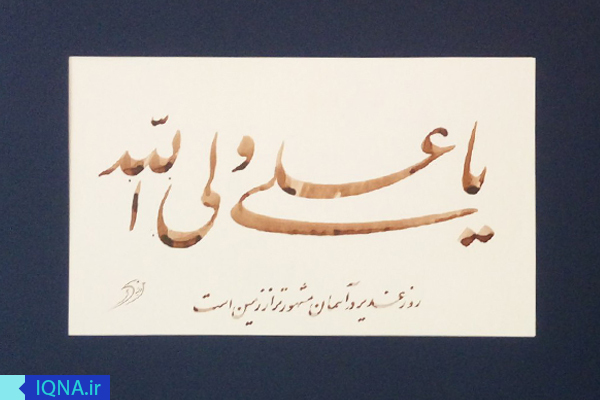 یا علی ولی الله
روز غدیر در آسمان مشهورتر از زمین است
IQNA.ir